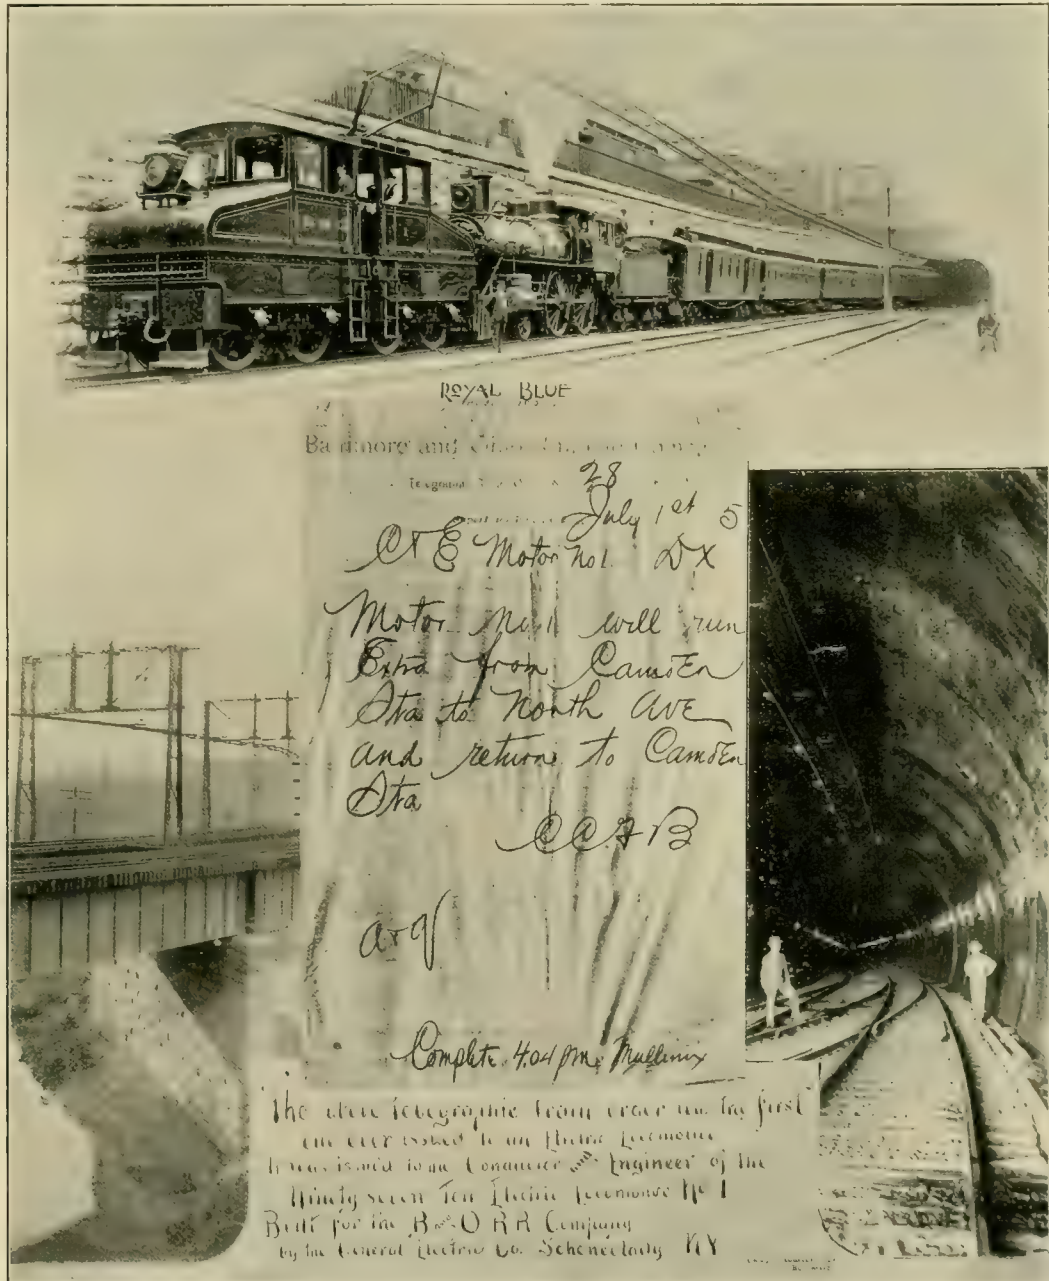 ROYAL BLUE
Baltimore and Ohio
Telegraph
28
July 1st 5
C & E Motor No 1. DX
Motor No 1 will run
Extra from Camden
Sta to North Ave
and return to Camden
Sta
Complete 4.04 pm. Mullinix
The above telegraphic train order was the first
one ever issued to an Electric Locomotive
It was issued to the Conductor and Engineer of the
Ninety seven Ton Electric Locomotive No 1
Built for the B and O R R Company
by the General Electric Co. Schenectady NY